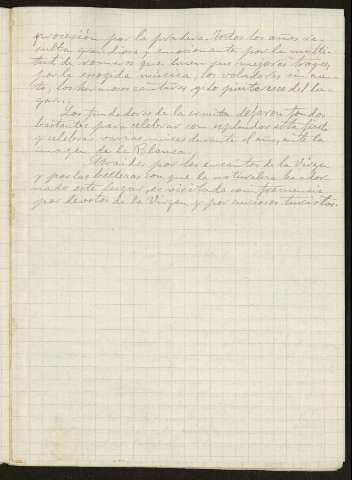 procesión por la pradera. Todos los años re-
sulta grandiosa y emocionante por la multi-
tud de romeros que lucen sus mejores trajes,
por la escogida música, los voladores sin cuen-
to, los hermosos cantares y lo pintoresco del lu-
gar...
Los fundadores de la ermita dejaron fondos
bastantes para celebrar con esplendor esta fiesta
y celebrar varias misas durante el año, ante la
imagen de la Blanca.
Atraídos por los encantos de la Virgen
y por las bellezas con que la naturaleza ha ador-
nado este lugar, es visitada con frecuencia
por devotos de la Virgen y por curiosos turistas.